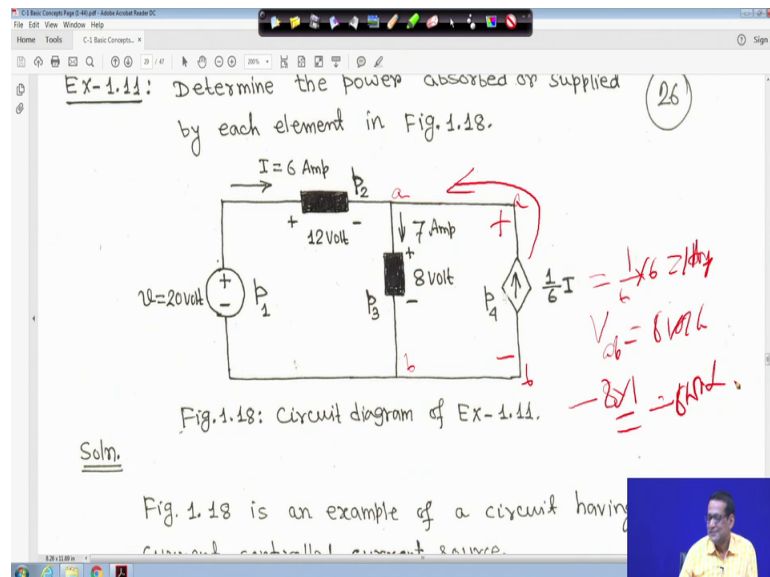 C-1 Basic Concepts Page (1-44).pdf - Adobe Acrobat Reader DC
File Edit View Window Help
Home Tools C-1 Basic Concepts... × Sign
29 / 47 200%
Ex-1.11: Determine the power absorbed or supplied
26
by each element in Fig. 1.18.
I = 6 Amp
p2 a a
+ 12 Volt -
7 Amp
+
+
8 volt
-
v=20volt
+
-
p1
p3
p4
1/6 I = 1/6 × 6 = 1 Amp
Vab = 8 Volt
-
b b
- 8×1 =
Fig. 1.18: Circuit diagram of Ex-1.11.
Soln.
Fig. 1.18 is an example of a circuit having
current controlled current source.
8.26 x 11.69 in